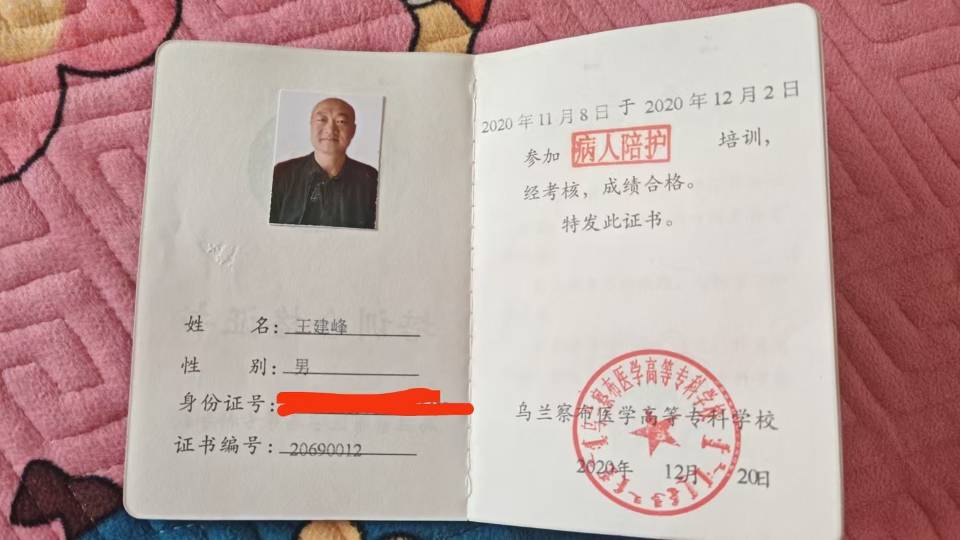 姓 名：王建峰
性 别：男
身份证号：
证书编号：20690012
2020年11月8日于2020年12月2日
参加 病人陪护 培训，
经考核，成绩合格。
特发此证书。
乌兰察布医学高等专科学校
乌兰察布医学高等专科学校
2020年 12月 20日